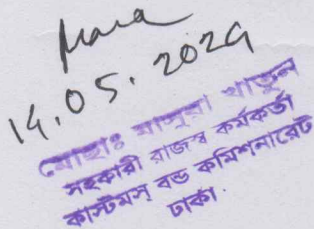 14.05.2029
মোছাঃ মাসুমা খাতুন
সহকারী রাজস্ব কর্মকর্তা
কাস্টমস্ বন্ড কমিশনারেট
ঢাকা.